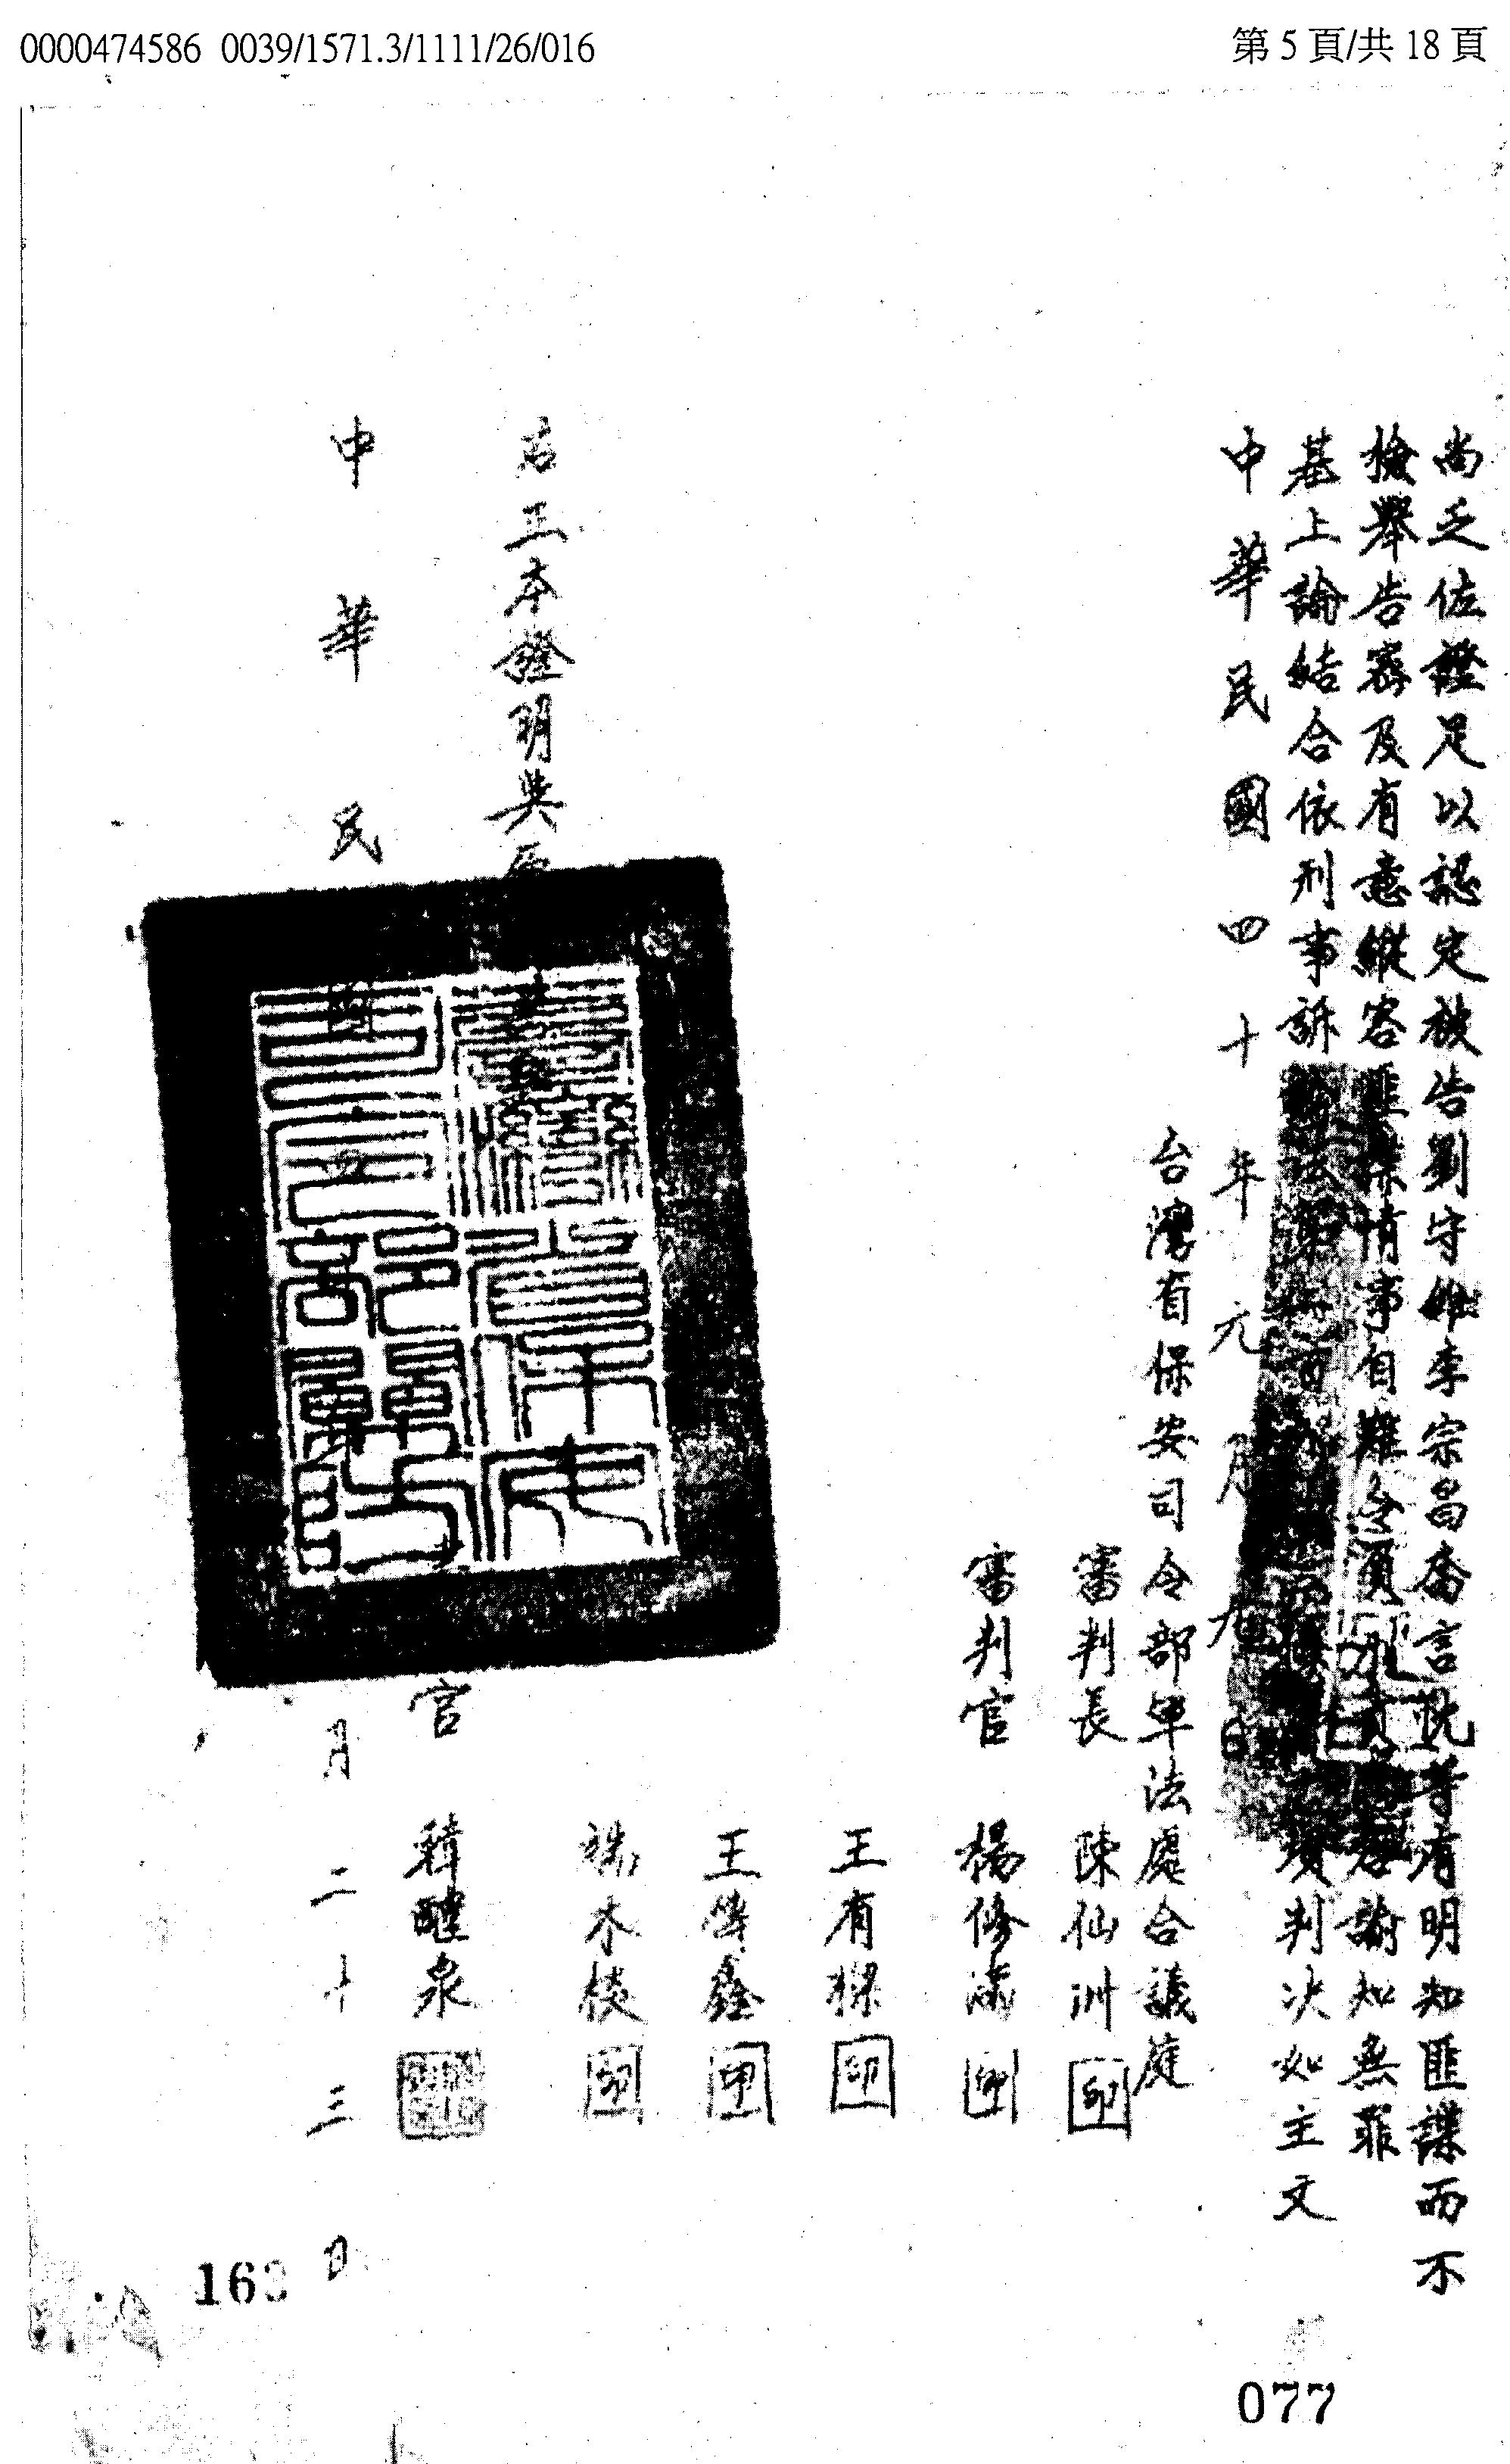 0000474586 0039/1571.3/1111/26/016
第 5 頁/共 18 頁
尚乏佐證足以認定被告劉守維李宗昌喬言忱等有明知匪諜而不
檢舉告密及有意縱容匪諜情事自難令負刑責應諭知無罪
基上論結合依刑事訴訟法第 百 判決如主文
中華民國四十年元月九日
台灣省保安司令部軍法處合議庭
審判長 陳仙洲 印
審判官 楊修 印
王有樑 印
王傳鑫 印
木棪 印
右正本證明與原
官 韓醒泉
中華民國 月二十三日
163
077